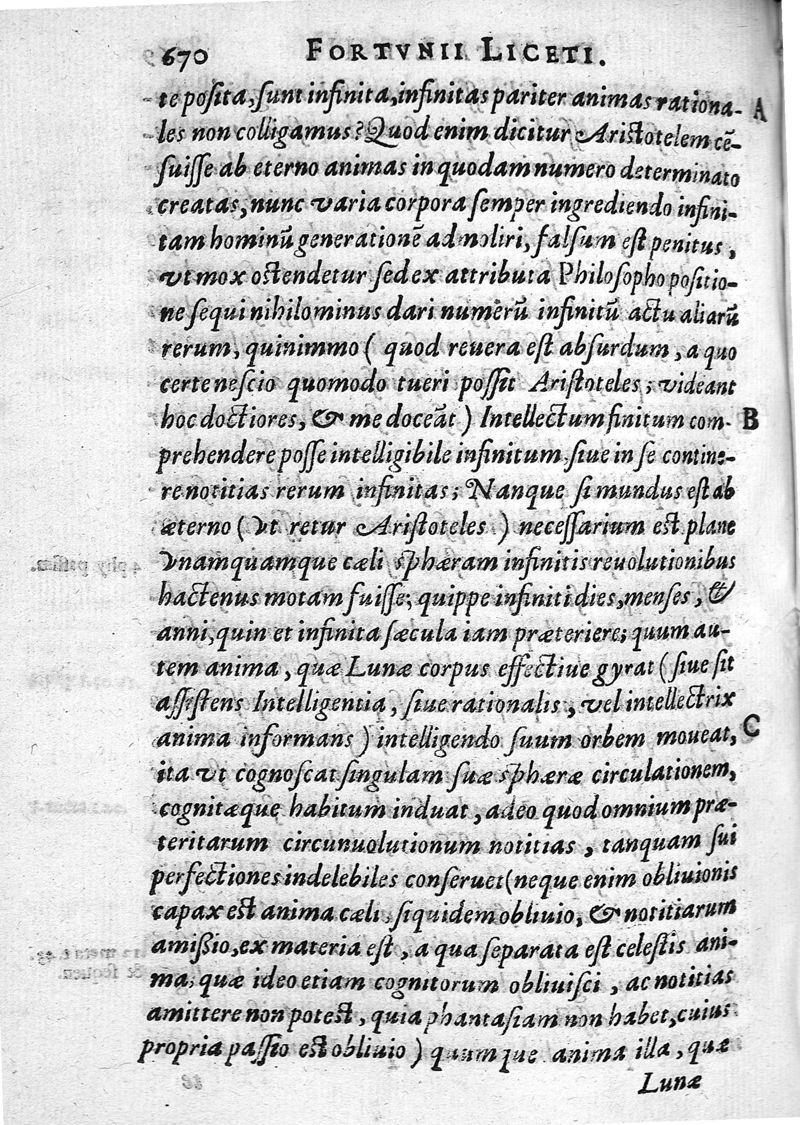 670 FORTVNII LICETI.
te posita, sunt infinita, infinitas pariter animas rationa- A
les non colligamus? Quod enim dicitur Aristotelem cē-
suisse ab eterno animas in quodam numero determinato
creatas, nunc varia corpora semper ingrediendo infini-
tam hominū generationē ad moliri, falsum est penitus,
vt mox ostendetur sed ex attributa Philosopho positio-
ne sequi nihilominus dari numerū infinitū actu aliarū
rerum, quinimmo ( quod reuera est absurdum, a quo
certe nescio quomodo tueri possit Aristoteles; videant
hoc doctiores, & me doceāt ) Intellectum finitum com- B
prehendere posse intelligibile infinitum siue in se contine-
re notitias rerum infinitas; Nanque si mundus est ab
æterno ( vt retur Aristoteles ) necessarium est plane
vnamquamque cæli sphæram infinitis reuolutionibus
hactenus motam fuisse; quippe infiniti dies, menses, &
anni, quin et infinita sæcula iam præteriere; quum au-
tem anima, quæ Lunæ corpus effectiue gyrat ( siue sit
assistens Intelligentia, siue rationalis, vel intellectrix
anima informans ) intelligendo suum orbem moueat, C
ita vt cognoscat singulam suæ sphæræ circulationem,
cognitæque habitum induat, adeo quod omnium præ-
teritarum circunuolutionum notitias, tanquam sui
perfectiones indelebiles conseruet (neque enim obliuionis
capax est anima cæli, siquidem obliuio, & notitiarum
amißio, ex materia est, a qua separata est celestis ani-
ma; quæ ideo etiam cognitorum obliuisci, ac notitias
amittere non potest, quia phantasiam non habet, cuius
propria passio est obliuio ) quumque anima illa, quæ
Lunæ